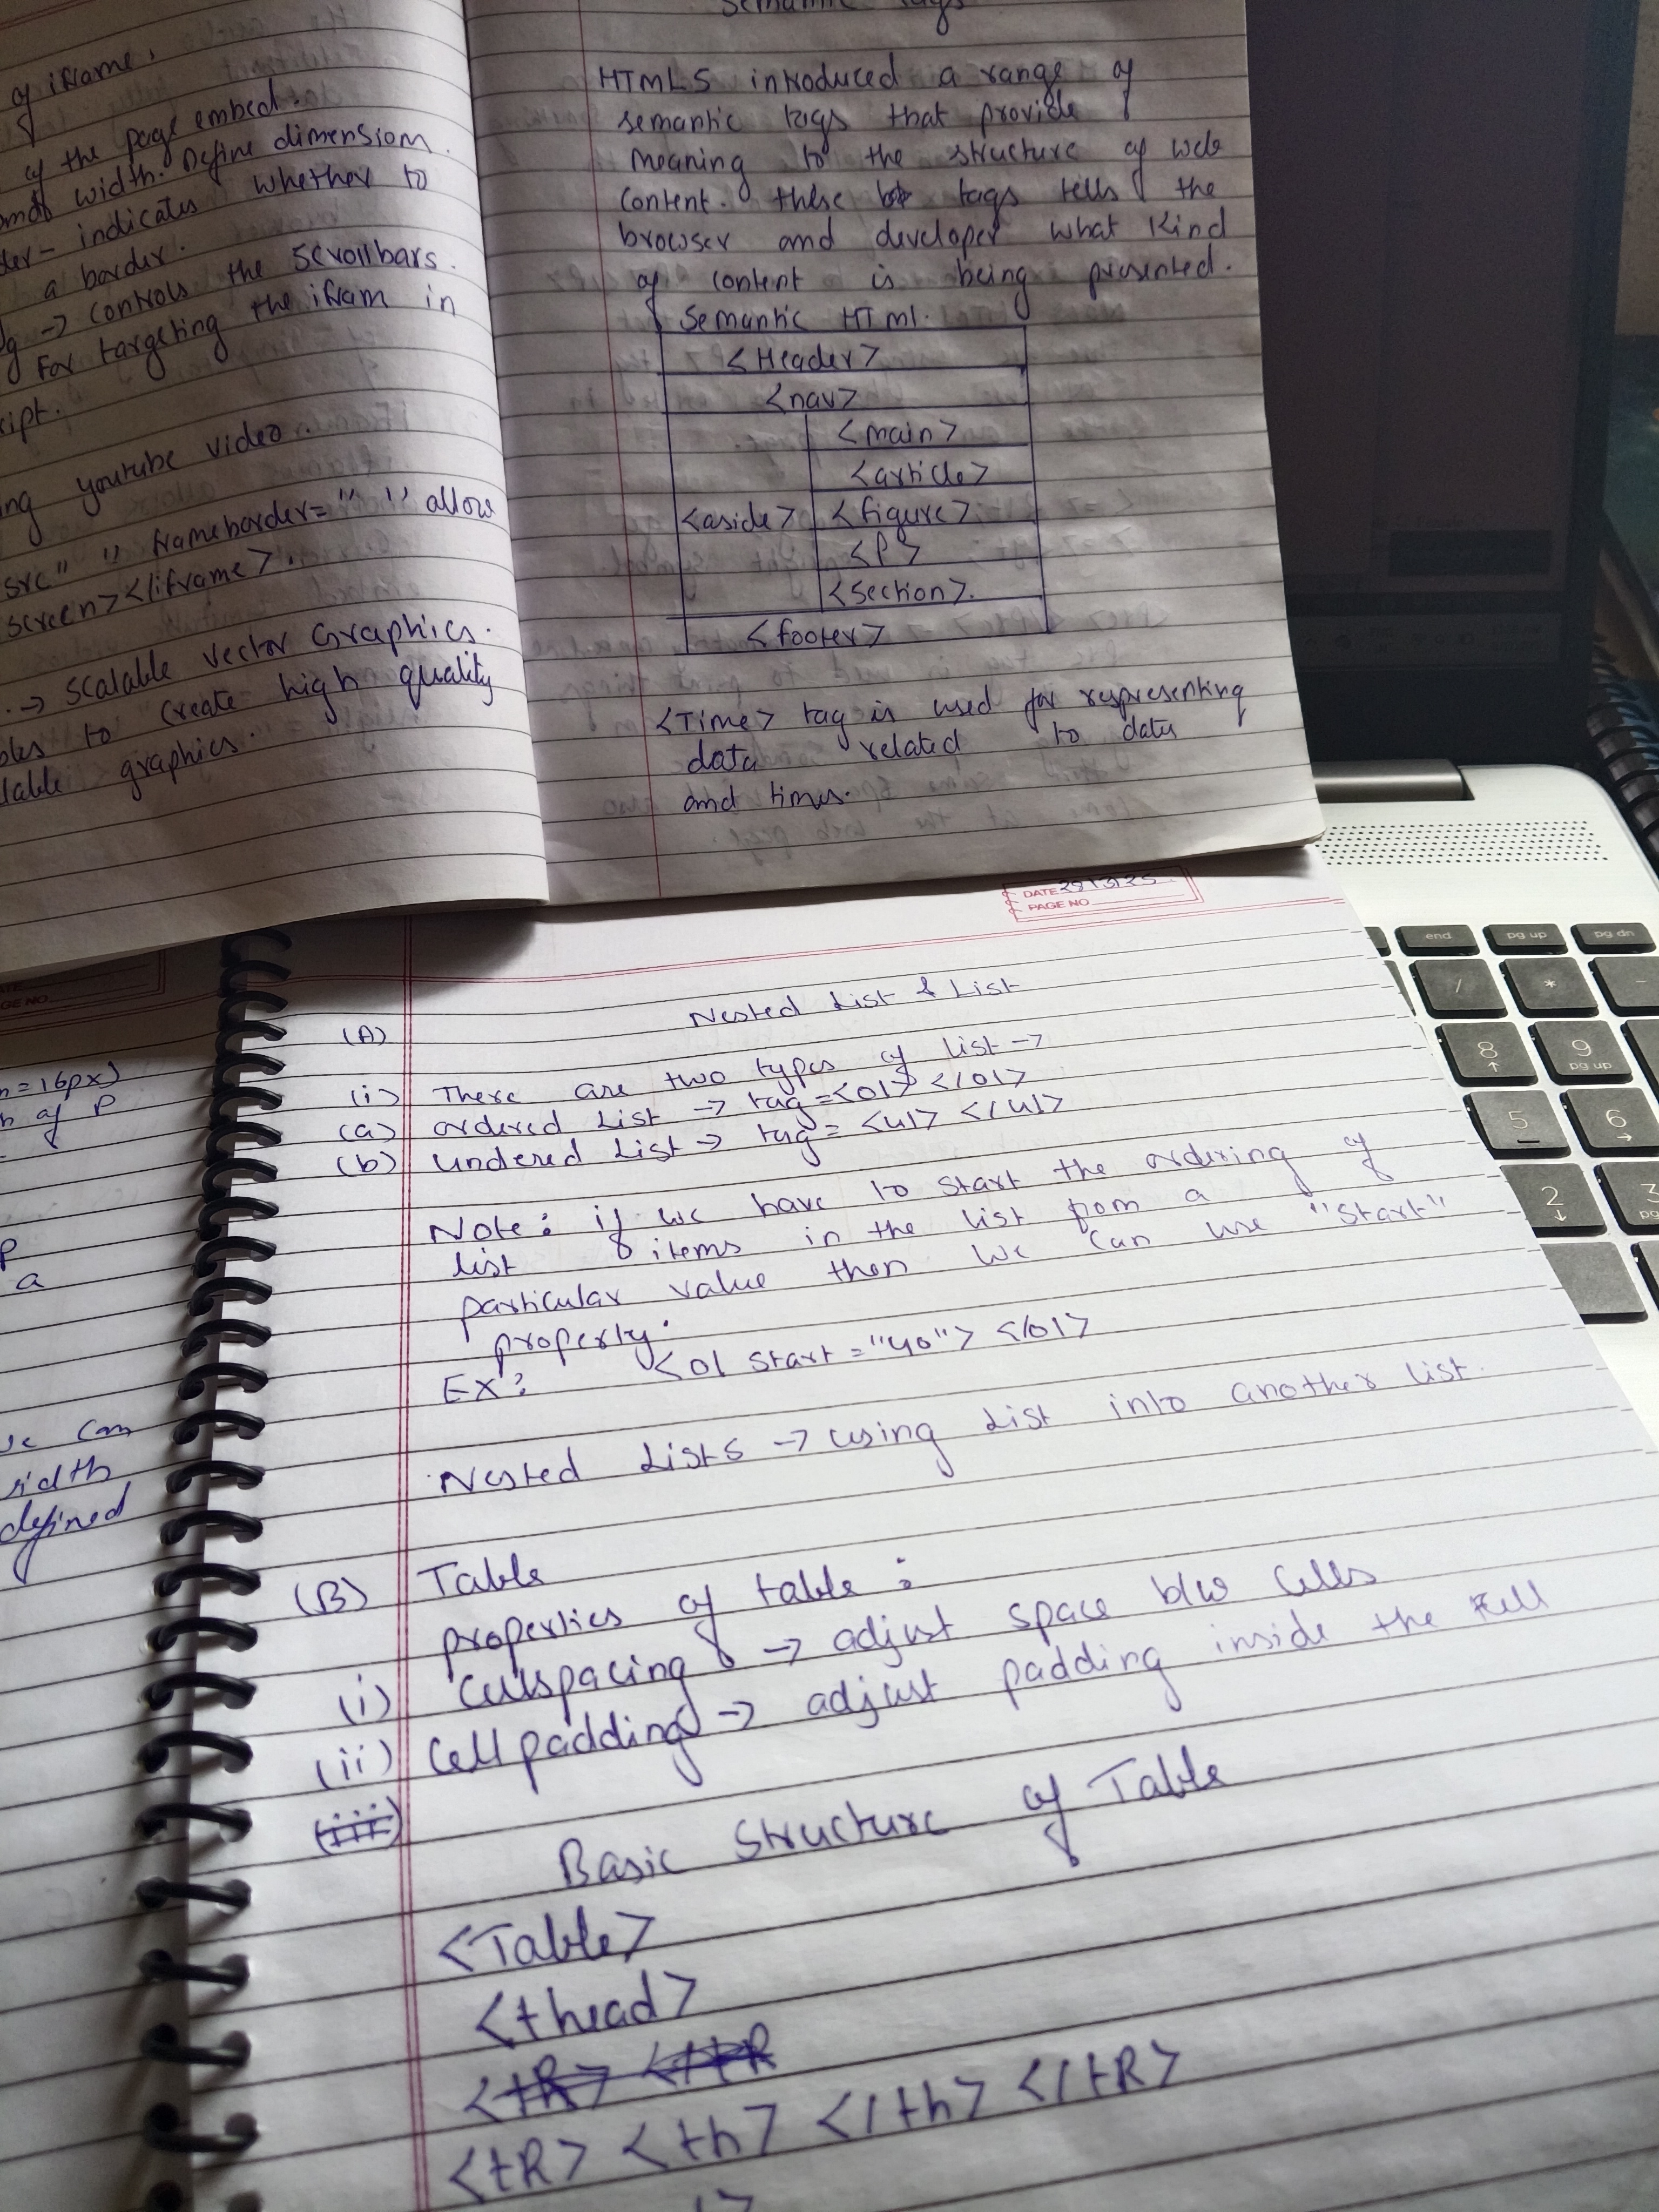 of iframe.
of the page embed.
width. Define dimension.
indicates whether to
a border.
→ controls the scrollbars.
For targeting the ifram in
ript.
ing youtube video.
src" " frameborder=" " allow
screen></iframe>.
→ Scalable Vector Graphics.
to create high quality
graphics.
Semantic Tags
HTML5 introduced a range of
semantic tags that provide
meaning to the structure of web
content. these tags tells the
browser and developer what kind
of content is being presented.
Semantic HTML.
<Header>
<nav>
<main>
<article>
<aside> <figure>
<P>
<section>.
<footer>
<Time> tag is used for representing
data related to dates
and times.
n=16px)
of P
P
a
can
width
defined
DATE
PAGE NO.
Nested List & List
(A)
(i) There are two types of list →
(a) ordered List → tag=<ol> </ol>
(b) undered List → tag= <ul> </ul>
Note: if we have to start the ordering of
list items in the list from a
particular value then we can use "Start"
property.
Ex: <ol start="40"> </ol>
Nested Lists → using List into another list.
(B) Table
properties of table:
(i) Cellspacing → adjust space b/w Cells
(ii) Cellpadding → adjust padding inside the cell
(iii)
Basic Structure of Table
<Table>
<thead>
<tR> </tR
<tR> <th> </th> </tR>
end pg up pg dn
/ * -
8 9 pg up
5 6
2 3